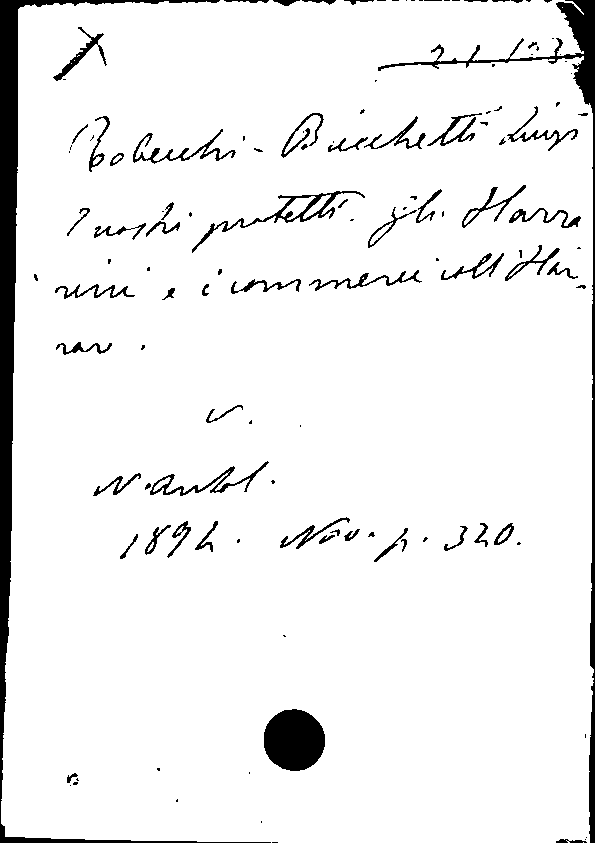 2.1.123
Robecchi-Bricchetti Luigi
I nostri protetti. gli Harra
rini e i commerci coll'Har-
rar.
v.
N. Antol.
1892. Nov. p. 320.